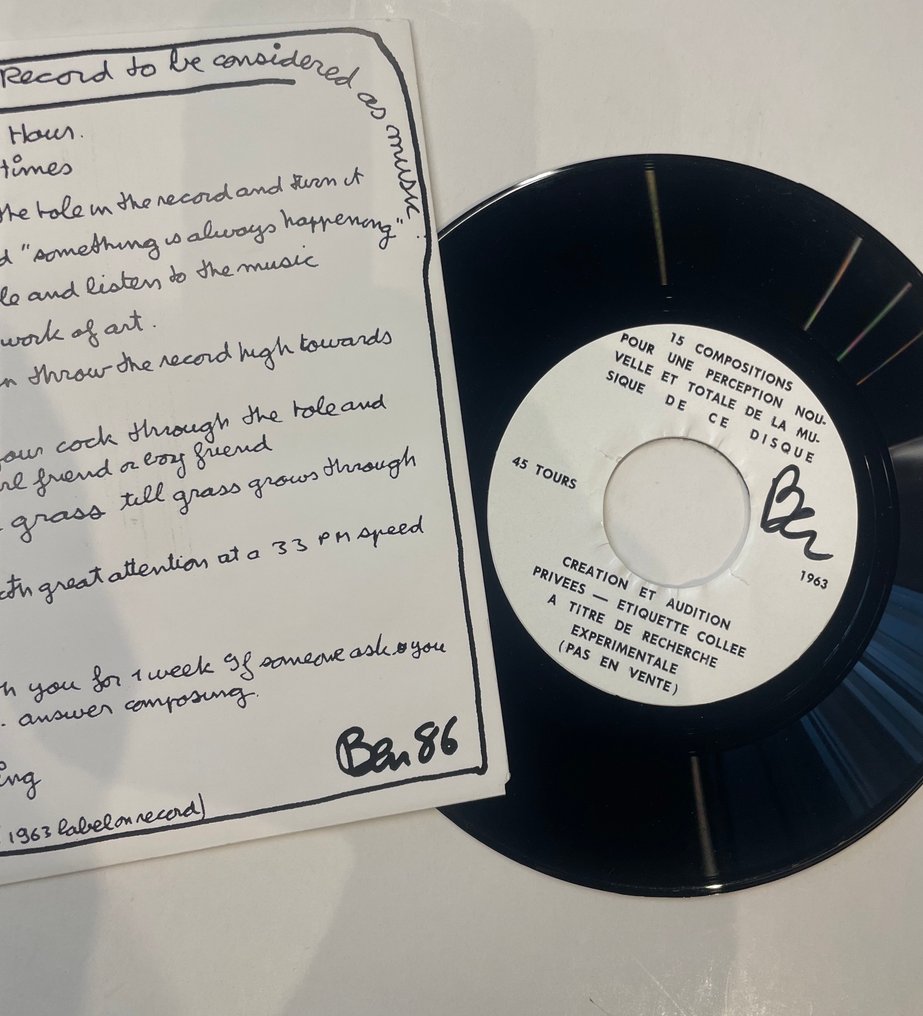 Record to be considered as music
Hour.
times
the hole in the record and turn it
"something is always happening"
and listen to the music
work of art.
throw the record high towards
cock through the hole and
friend or boy friend
grass till grass grows through
great attention at a 33 PM speed
you for 1 week If someone ask you
answer composing.
Ben 86
1963 label on record)
15 COMPOSITIONS
POUR UNE PERCEPTION NOU-
VELLE ET TOTALE DE LA MU-
SIQUE DE CE DISQUE
45 TOURS
Ben
1963
CREATION ET AUDITION
PRIVEES — ETIQUETTE COLLEE
A TITRE DE RECHERCHE
EXPERIMENTALE
(PAS EN VENTE)